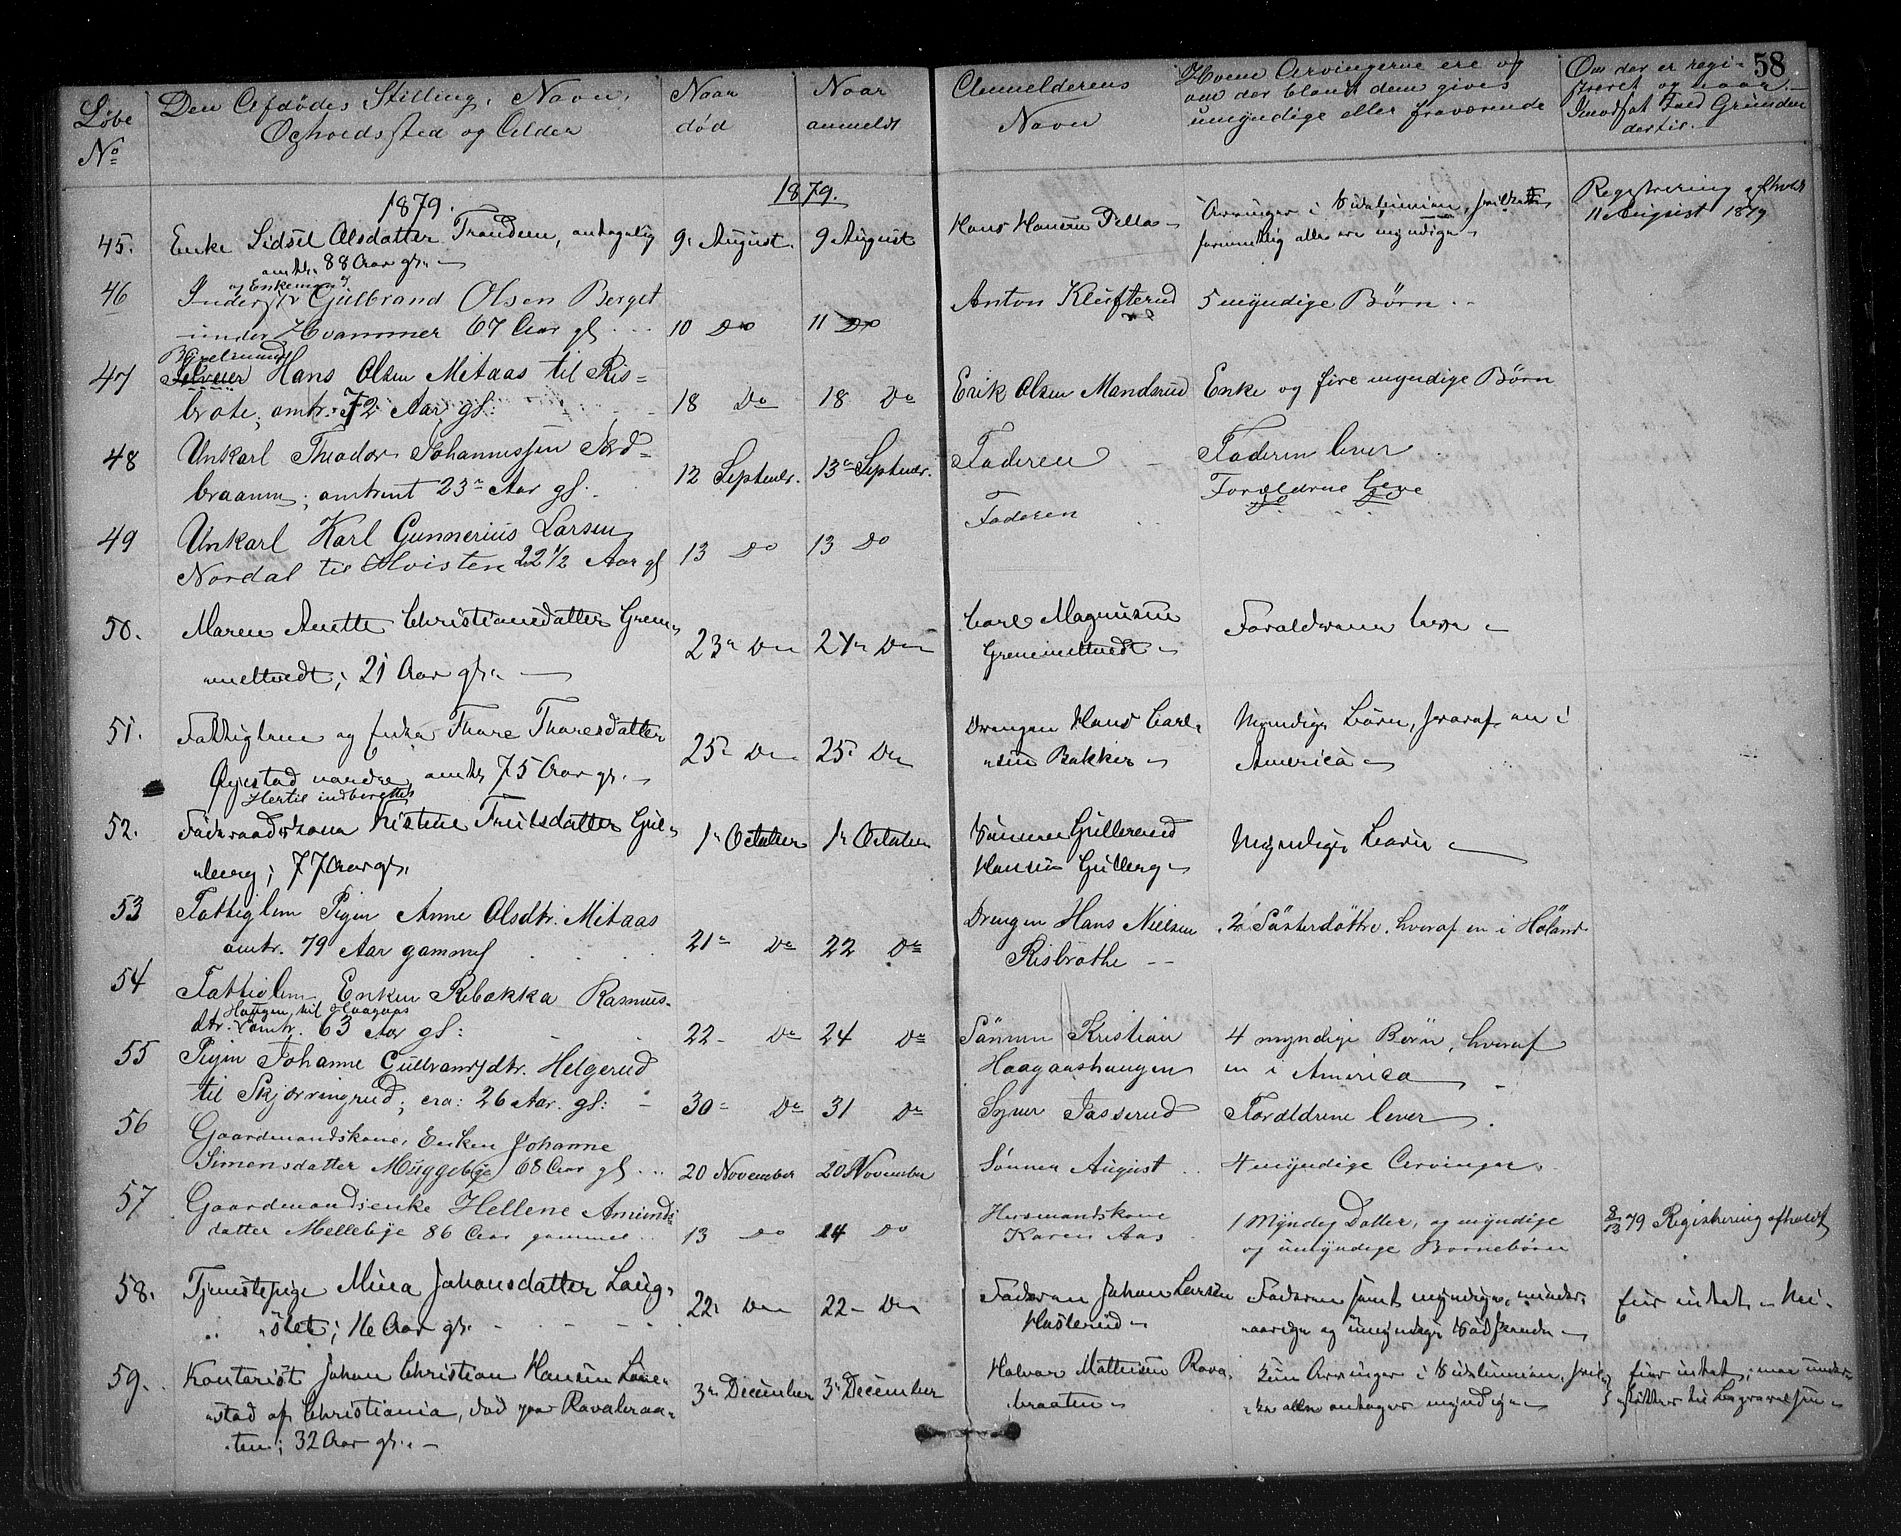 58
Løbe No
Den Afdødes Stilling, Navn,
Opholdssted og Alder
Naar død
Naar anmeldt
Anmelderens Navn
Hvem Arvingerne ere og
om der blandt dem gives
umyndige eller fraværende
Om der er regi-
streret og naar.
I modsat Fald Grunden
dertil.
1879.
1879.
45. Enke Sidsel Olsdatter Trandem,
amtr. 88 Aar gl. 9. August. 9 August Hans Hansen Arvinger i Sidelinien,
alle ere myndige
Registrering afholdt
11 August 1879
46 og Enkemand
Inderst Gulbrand Olsen Berget
under Hvammer 67 Aar gl 10 Do 11 Do Anton Klufterud 5 myndige Børn
47 Selveier Hans Olsen Mitaas til Ris-
brote, amtr. 72 Aar gl. 18 Do 18 Do Erik Olsen Mandsrud Enke og fire myndige Børn
48 Unkarl Theodor Johannessen
braanen, omtrent 23 Aar gl. 12 Septembr. 13 Septembr. Faderen Faderen lever
Forældrene Leve
49 Unkarl Karl Gunnerius Larsen
Nordal til Hvisten 22 1/2 Aar gl 13 Do 13 Do Faderen
50. Maren Anette Christiansdatter Grem-
meltvedt; 21 Aar gl. 23 Do 24 Do Carl Magnusen
Gremmeltvedt Forældrene leve
51. Fattiglem og Enke Thore Thoresdatter
nordre, amtr 75 Aar gl. 25 Do 25 Do Drengen Hans Carl-
sen Bakken Myndige Børn, hvoraf en i
America
Hertil indberettet
52. Føderaadskone Kistine Truelsdatter Gul-
berg; 77 Aar gl. 1 October 1 October Sønnen Gulbrand
Hansen Gulberg Myndige Børn
53 Fattiglem Pigen Anne Olsdtr. Mitaas
omtr. 79 Aar gammel 21 Do 22 Do Drengen Hans Nielsen
Risbrothe 2 Søsterdøttre, hvoraf en i Høland
54 Fattiglem Enken Rebekka Rasmus-
Haugen til Haagaas
dtr. omtr. 63 Aar gl: 22 Do 24 Do Sønnen Kristian
Haagaashaugen 4 myndige Børn, hvoraf
en i America
55 Pigen Johanne Gulbrandsdtr. Helgerud
til Skjørringrud, cra: 26 Aar. gl: 30 Do 31 Do Syver Tasserud Forældrene lever
56 Gaardmandskone, Enken Johanne
Simensdatter Muggebye 68 Aar gl 20 November 20 November Sønnen August 4 myndige Arvinger
57 Gaardmandsenke Hellene Amunds-
datter Mellebye 86 Aar gammel 13 Do 14 Do Husmandskone
Karen Aas 1 Myndig Datter, og myndige
og umyndige Børnebørn 8/12 79 Registrering afholdt
58. Tjenestepige Mina Johansdatter Laug-
slet; 16 Aar gl. 22. Do 22 Do Faderen Johan Larsen
Haslerud Faderen samt myndige, minder-
aarige og umyndige Sødskende Eier intet
59. Kontorist Johan Christian Hansen
stad af Christiania, død paa Ravabraa-
ten; 32 Aar gl. 3 December 3 December Halvor Mathisen Rava-
braaten Kun Arvinger i Sidelinien, hvil-
ke alle antages myndige Eier intet, men under-
støttes til Begravelsen